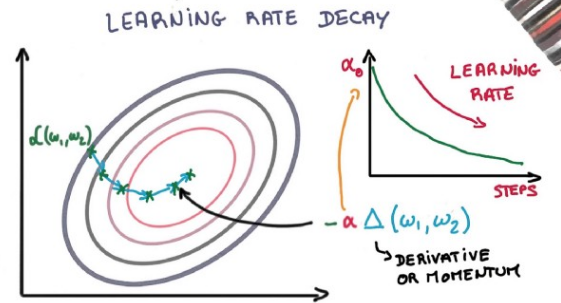 LEARNING RATE DECAY
α₀
LEARNING
RATE
STEPS
ℒ(ω₁,ω₂)
- α Δ (ω₁,ω₂)
↳ DERIVATIVE
OR MOMENTUM